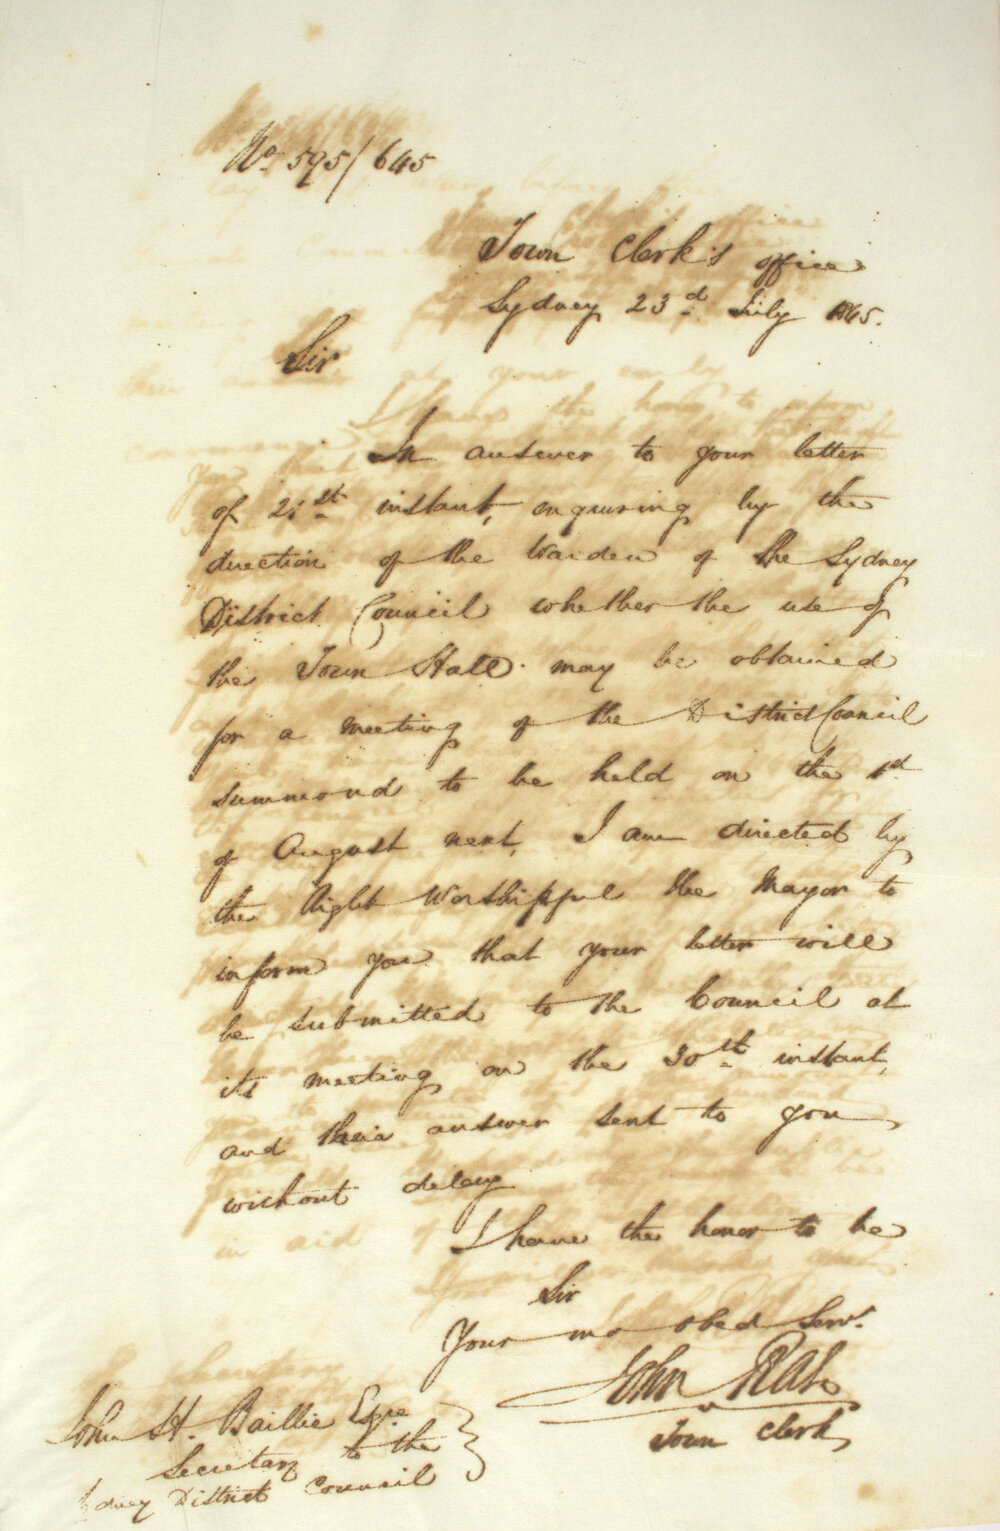 No. 595/645
Town Clerk's office
Sydney 23d July 1845.
Sir
In answer to your letter
of 21st instant, enquiring by the
direction of the Warden of the Sydney
District Council whether the use of
the Town Hall may be obtained
for a meeting of the District Council
summond to be held on the 1st
of August next, I am directed by
the Right Worshipful the Mayor to
inform you that your letter will
be submitted to the Council at
its meeting on the 30th instant,
and their answer sent to you
without delay
I have the honor to be
Sir
Your mo obed Servt.
John
Town Clerk
John St. Baillie Esqre
Secretary to the
Sydney District Council